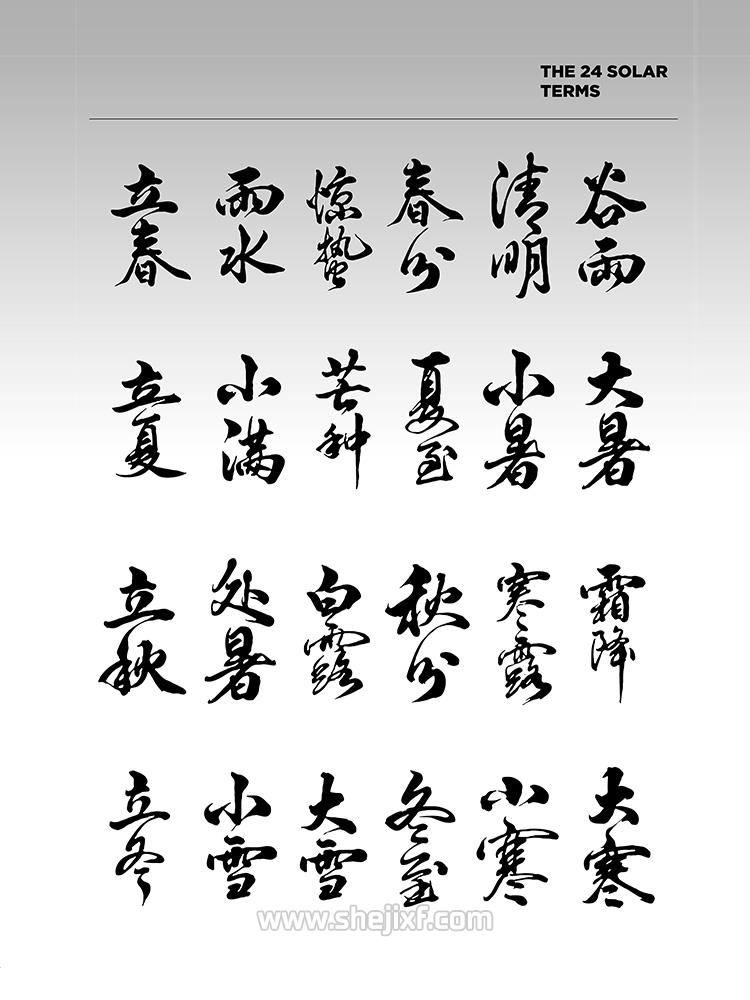 THE 24 SOLAR
TERMS
立春 雨水 惊蛰 春分 清明 谷雨
立夏 小满 芒种 夏至 小暑 大暑
立秋 处暑 白露 秋分 寒露 霜降
立冬 小雪 大雪 冬至 小寒 大寒
www.shejixf.com